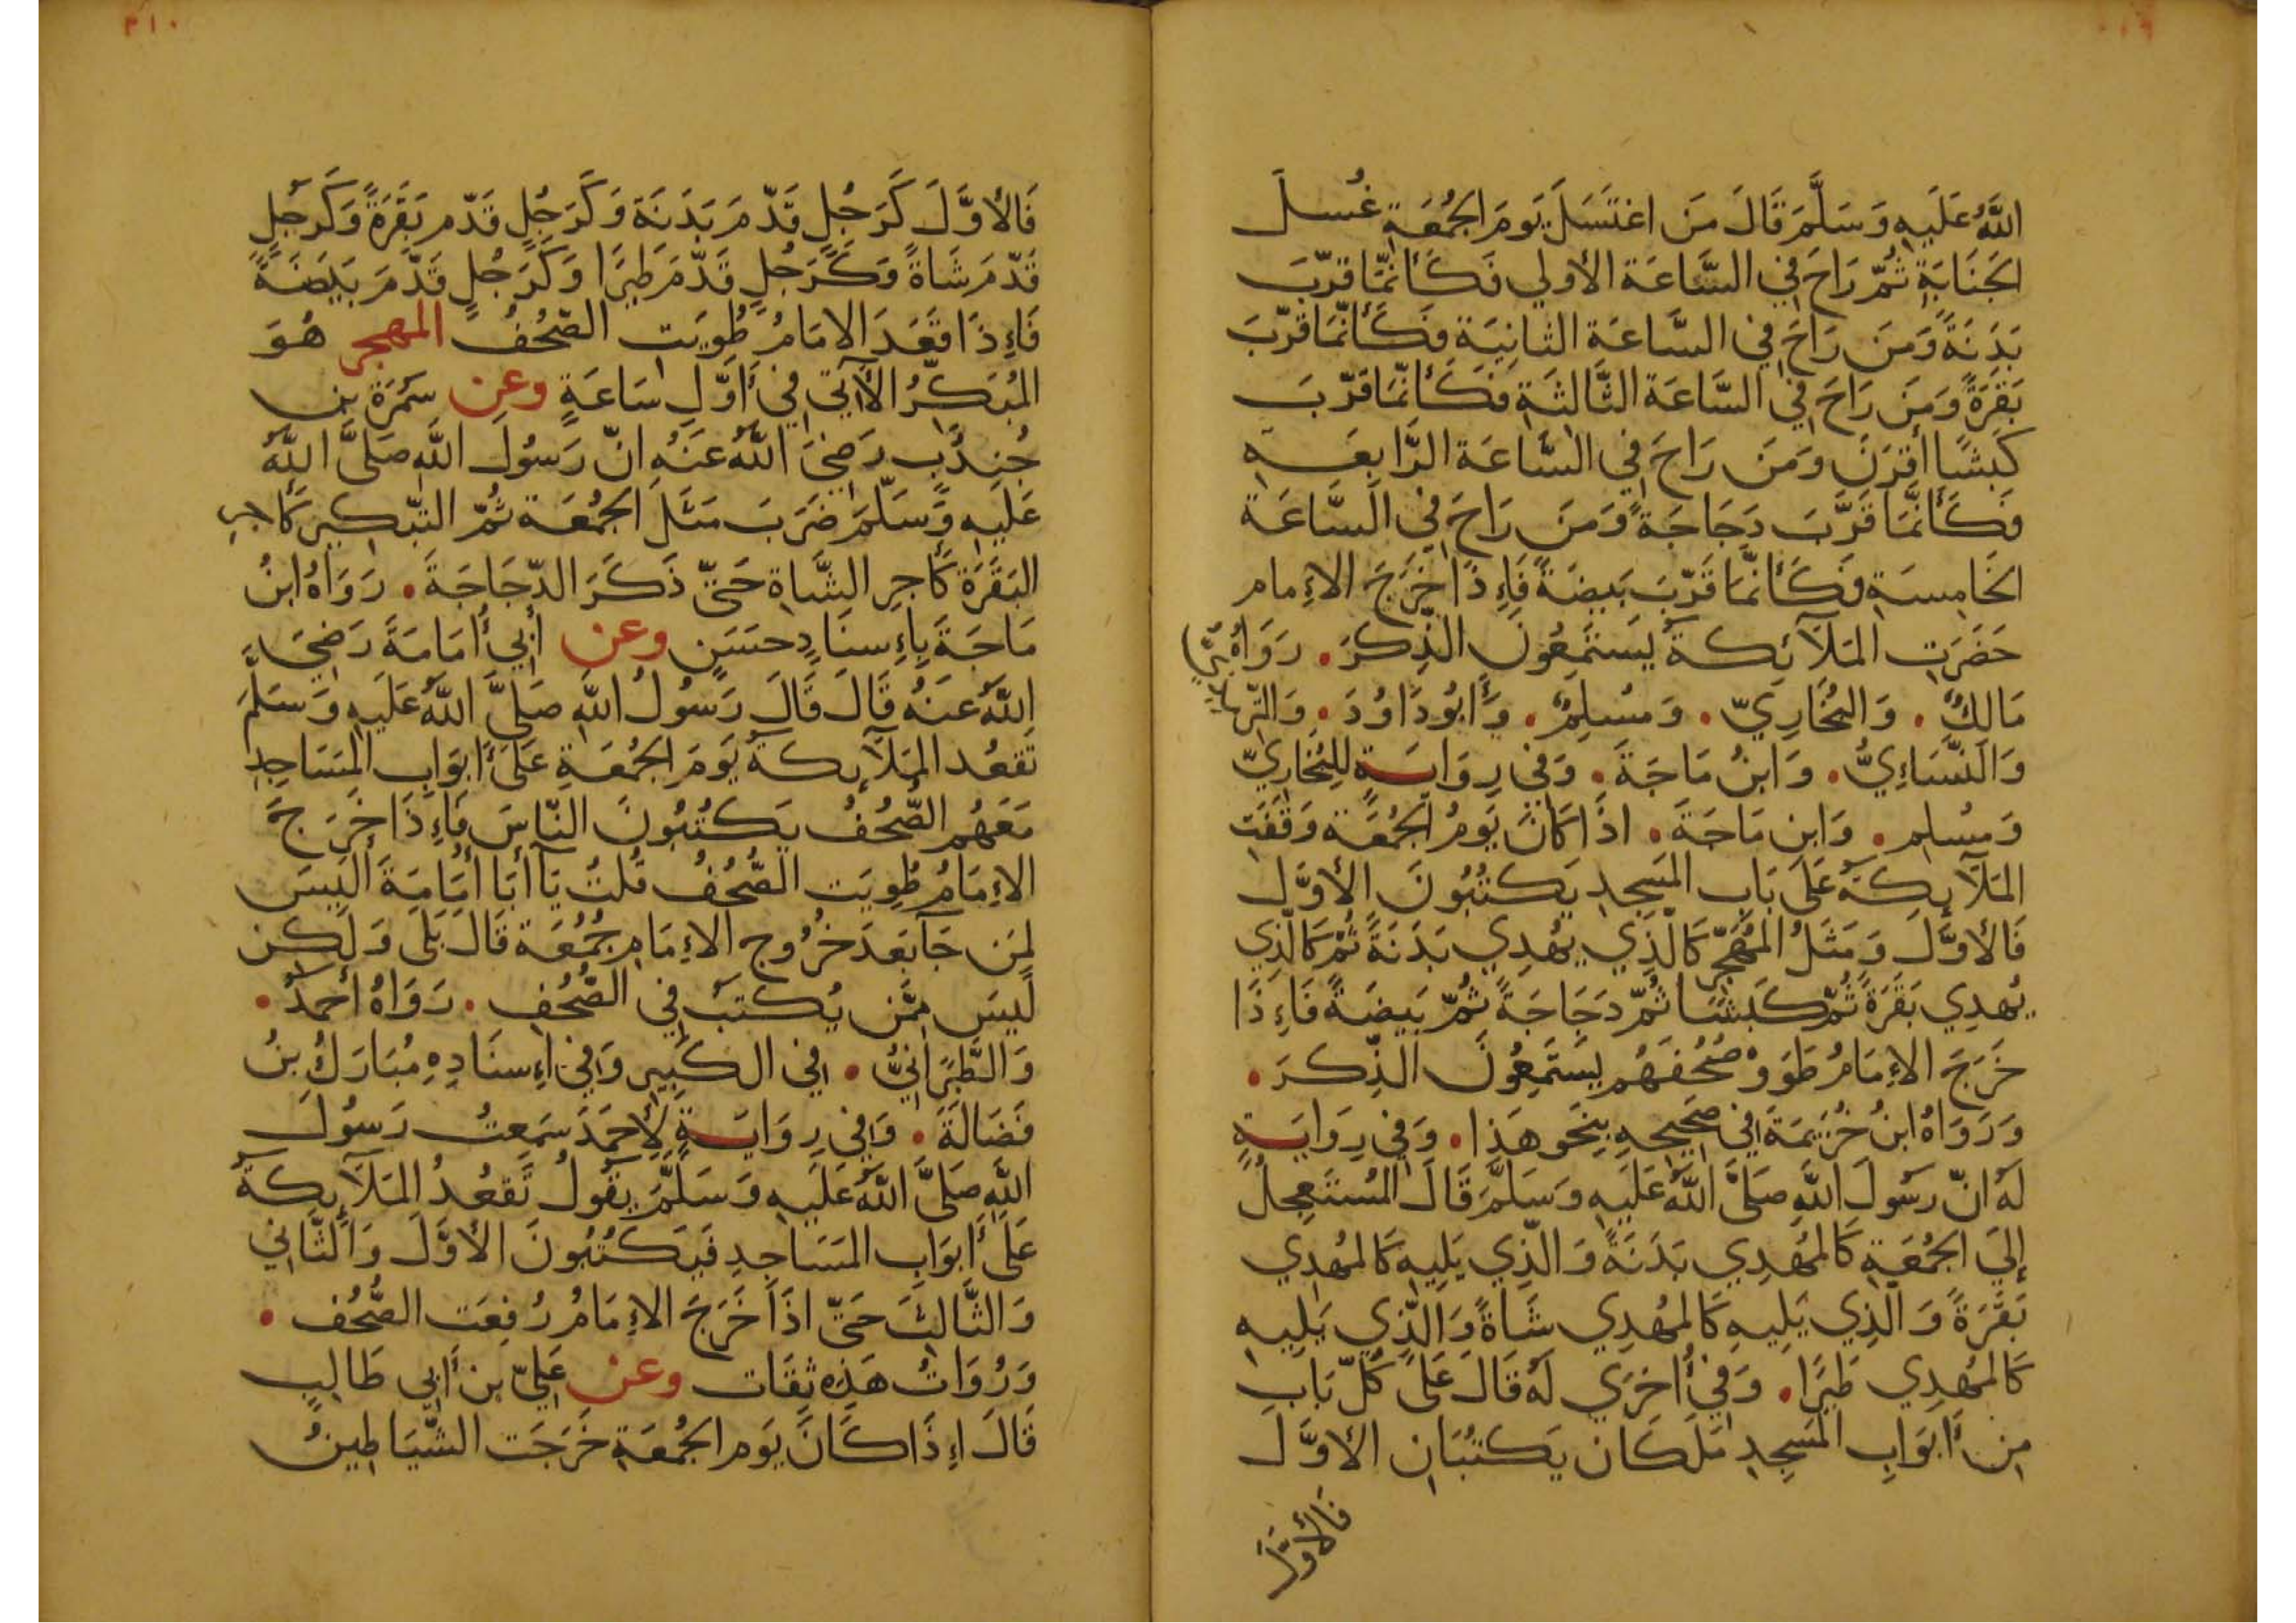 اللَّهُ عَلَيهِ وَسَلَّمَ قَالَ مَن اغتَسَلَ يَومَ الجُمُعَةِ غُسلَ
الجَنَابَةِ ثُمّ رَاحَ فِي السَّاعَة الأولي فَكَأَنّمَا قرّبَ
بَدَنَةً وَمَن رَاحَ فِي السَّاعَة الثانِيَة فَكَأَنّمَا قرّبَ
بَقَرَةً وَمَن رَاحَ فِي السَّاعَة الثَّالثَةِ فَكَأَنّمَا قَرّبَ
كَبشًا أقرَنَ وَمَن رَاحَ فِي السَّاعَة الرَّابعَه
فَكَأَنَّمَا قَرَّبَ دَجَاجَةً وَمَن رَاحَ فِي السَّاعَة
الخَامِسَةِ فَكَأَنّمَا قَرّبَ بَيضَةً فَاِذَا خَرَجَ الاِمام
حَضَرَتِ المَلَآئِكة يَستَمِعُونَ الذِكرَ. رَوَاهُ
مَالِكٌ. وَالبُخَارِيّ. وَمُسلِمٌ. وَأبُودَاوُدَ. وَالتِّرمِذِيّ
وَالنَّسَاءِيُّ. وَابنُ مَاجَةَ. وَفي رِوَايَةٍ لِلبُخَارِيّ
وَمُسلِم. وَابنِ مَاجَةَ. اذَا كَانَ يَومُ الجُمُعَة وَقَفَتِ
المَلَآيِكَةُ عَلَى بَابِ المَسجِدِ يَكتُبُونَ الأوَّلَ
فَالأوَّلَ وَمَثَلُ المُهَجّرِ كَالّذِي يُهدِي بَدَنَةً ثُمّ كَالّذِي
يُهدِي بَقَرَةً ثُمّ كَبشًا ثُمّ دَجَاجَةً ثُمّ بَيضَةً فَاِذَا
خَرَجَ الاِمَامُ طَوَوْ صُحُفَهُم يَستَمِعُونَ الذِّكرَ.
وَرَوَاهُ ابنُ خُزَيمَةَ فِي صَحِيحِهِ بِنَحوِ هَذا. وَفي رِوَايَةٍ
لَهُ انّ رَسُولَ اللَّهِ صَلَّى اللَّهُ عَلَيهِ وَسَلَّمَ قَالَ المُستَعجِلُ
إلَيَ الجُمُعَةِ كَالمُهدِي بَدَنَةً وَالّذِي يَلِيهِ كَالمُهدِي
بَقَرَةً وَالّذِي يَلِيهِ كَالمُهدِي شَاةً وَالّذِي يَلِيهِ
كَالمُهدِي طَيرًا. وَفي أُخرَي لَهُ قَالَ عَلَى كُلّ بَابِ
مِن أَبوَابِ المَسجِدِ مَلَكَان يَكتُبَانِ الأوَّلَ
فَالأوَّلَ
٢١٠
فَالأوَّلَ كَرَجُلٍ قَدّمَ بَدَنَة وَكَرَجُلٍ قَدّم بَقَرَةً وَكَرَجُلٍ
قَدّمَ شَاةً وَكَرَجُلٍ قَدّمَ طَيرًا وَكَرَجُلٍ قَدَّمَ بَيضَةً
فَاِذَا قَعَدَ الامَامُ طُوِيَت الصُّحُفُ المهجر هُوَ
المُبَكّرُ الآتي فِي أَوّلِ سَاعَةٍ وعن سَمُرَةَ بنِ
جُندُبٍ رَضِيَ اللَّهُ عَنهُ انّ رَسُولَ اللَّه صَلَّى اللَّهُ
عَلَيهِ وَسَلّمَ ضَرَبَ مَثَلَ الجُمُعَة ثُمّ التَّبكِيرِ كَاجرِ
البَقَرَة كَأجرِ الشَّاةِ حَتّي ذَكَرَ الدّجَاجَةَ. رَوَاهُ ابنُ
مَاجَةَ بِاِسنَادٍ حسَنٍ وعن أَبِي أُمَامَةَ رَضِيَ
اللَّهُ عَنهُ قَالَ قَالَ رَسُولُ اللَّهِ صَلَّى اللَّهُ عَلَيهِ وَسَلَّمَ
تَقعُد المَلَآيِكةُ يَومَ الجُمُعَةِ عَلَى أَبوَابِ المَسَاجِدِ
مَعَهُم الصُّحُفُ يَكتُبُونَ النّاسَ فَاِذَا خَرَجَ
الاِمَامُ طُوِيَت الصُّحُفُ قُلتُ يَآ أبَا أُمَامَةَ ألَيسَ
لِمَن جَآ بَعدَ خُرُوجِ الاِمَامِ جُمُعَة قَالَ بَلَى وَلَكن
لَيسَ مِمَّن يُكتَبُ فِي الصُّحُفِ. رَوَاهُ أحمَدُ.
وَالطَّبَرَانيُّ. فِي الكَبِيرِ وَفِي اِسنَادِهِ مُبَارَكُ بنُ
فَضَالَةَ. وَفِي رِوَايَةٍ لأحمَدَ سَمِعتُ رَسُولَ
اللَّهِ صَلَّى اللَّهُ عَلَيهِ وَسَلَّمَ يَقُولُ تَقعُدُ المَلَآيِكَةُ
عَلَى أَبوَابِ المَسَاجِدِ فَيَكتُبُونَ الأوَّلَ وَالثَّاني
وَالثَّالِثَ حَتّي اذَا خَرَجَ الاِمَامُ رُفِعَت الصُّحُف.
وَرُوَاتُ هَذِهِ ثِقَات وعن عَلِيّ بن أَبي طَالِبٍ
قَالَ اِذَا كَانَ يَوم الجُمُعَةِ خَرَجَت الشَّيَاطِينُ